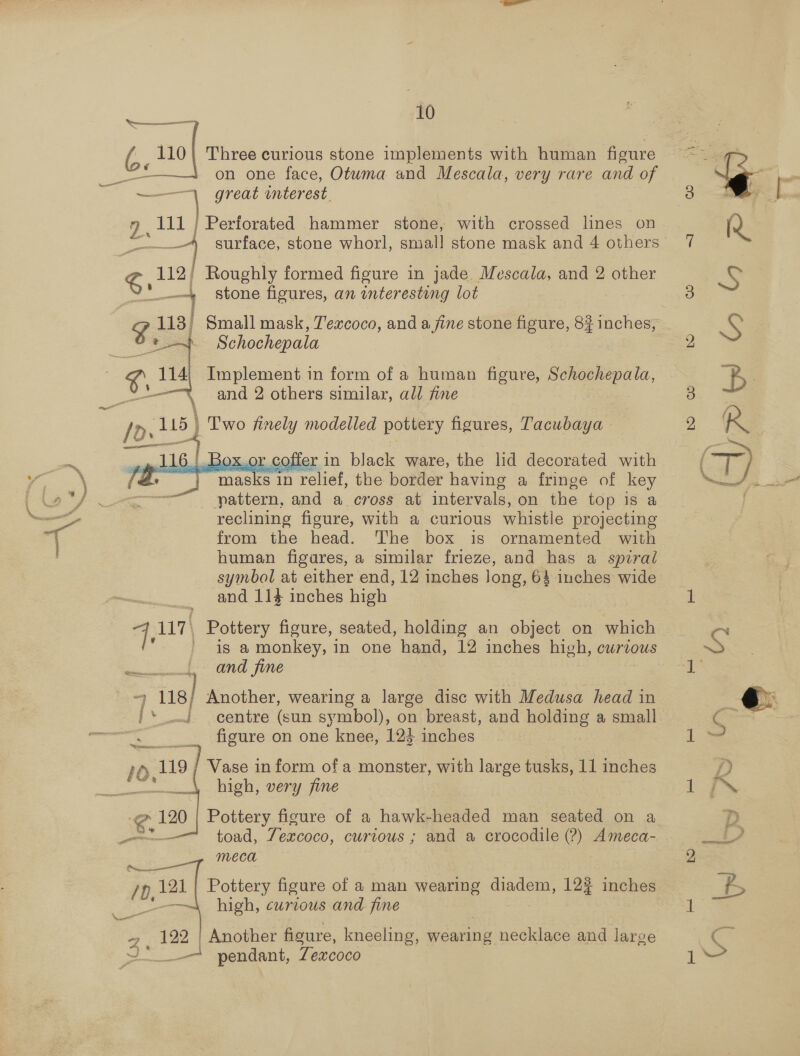 10
6. 110 Three curious stone implements with human figure
on one face, Otuma and Mescala, very rare and of
great interest 3 B
7. 111 Perforated hammer stone, with crossed lines on
surface, stone whorl, small stone mask and 4 others 7 R
8. 112 Roughly formed figure in jade Mescala, and 2 other
stone figures, an interesting lot 3 S
8. 113 Small mask, Texcoco, and a fine stone figure, 8¾ inches,
Schochepala 2 S
8. 114 Implement in form of a human figure, Schochepala,
and 2 others similar, all fine 3 B
10. 115 Two finely modelled pottery figures, Tacubaya 2 R
116 Box or coffer in black ware, the lid decorated with T
masks in relief, the border having a fringe of key
pattern, and a cross at intervals, on the top is a
reclining figure, with a curious whistle projecting
from the head. The box is ornamented with
human figures, a similar frieze, and has a spiral
symbol at either end, 12 inches long, 6½ inches wide
and 11½ inches high 1
7. 117 Pottery figure, seated, holding an object on which
is a monkey, in one hand, 12 inches high, curious S
and fine 1
7. 118 Another, wearing a large disc with Medusa head in
centre (sun symbol), on breast, and holding a small
figure on one knee, 12½ inches 1 S
10. 119 Vase in form of a monster, with large tusks, 11 inches
high, very fine 1 R
8. 120 Pottery figure of a hawk-headed man seated on a
toad, Texcoco, curious ; and a crocodile (?) Ameca-
meca 2
10. 121 Pottery figure of a man wearing diadem, 12¾ inches
high, curious and fine 1 B
3. 122 Another figure, kneeling, wearing necklace and large
pendant, Texcoco 1 S